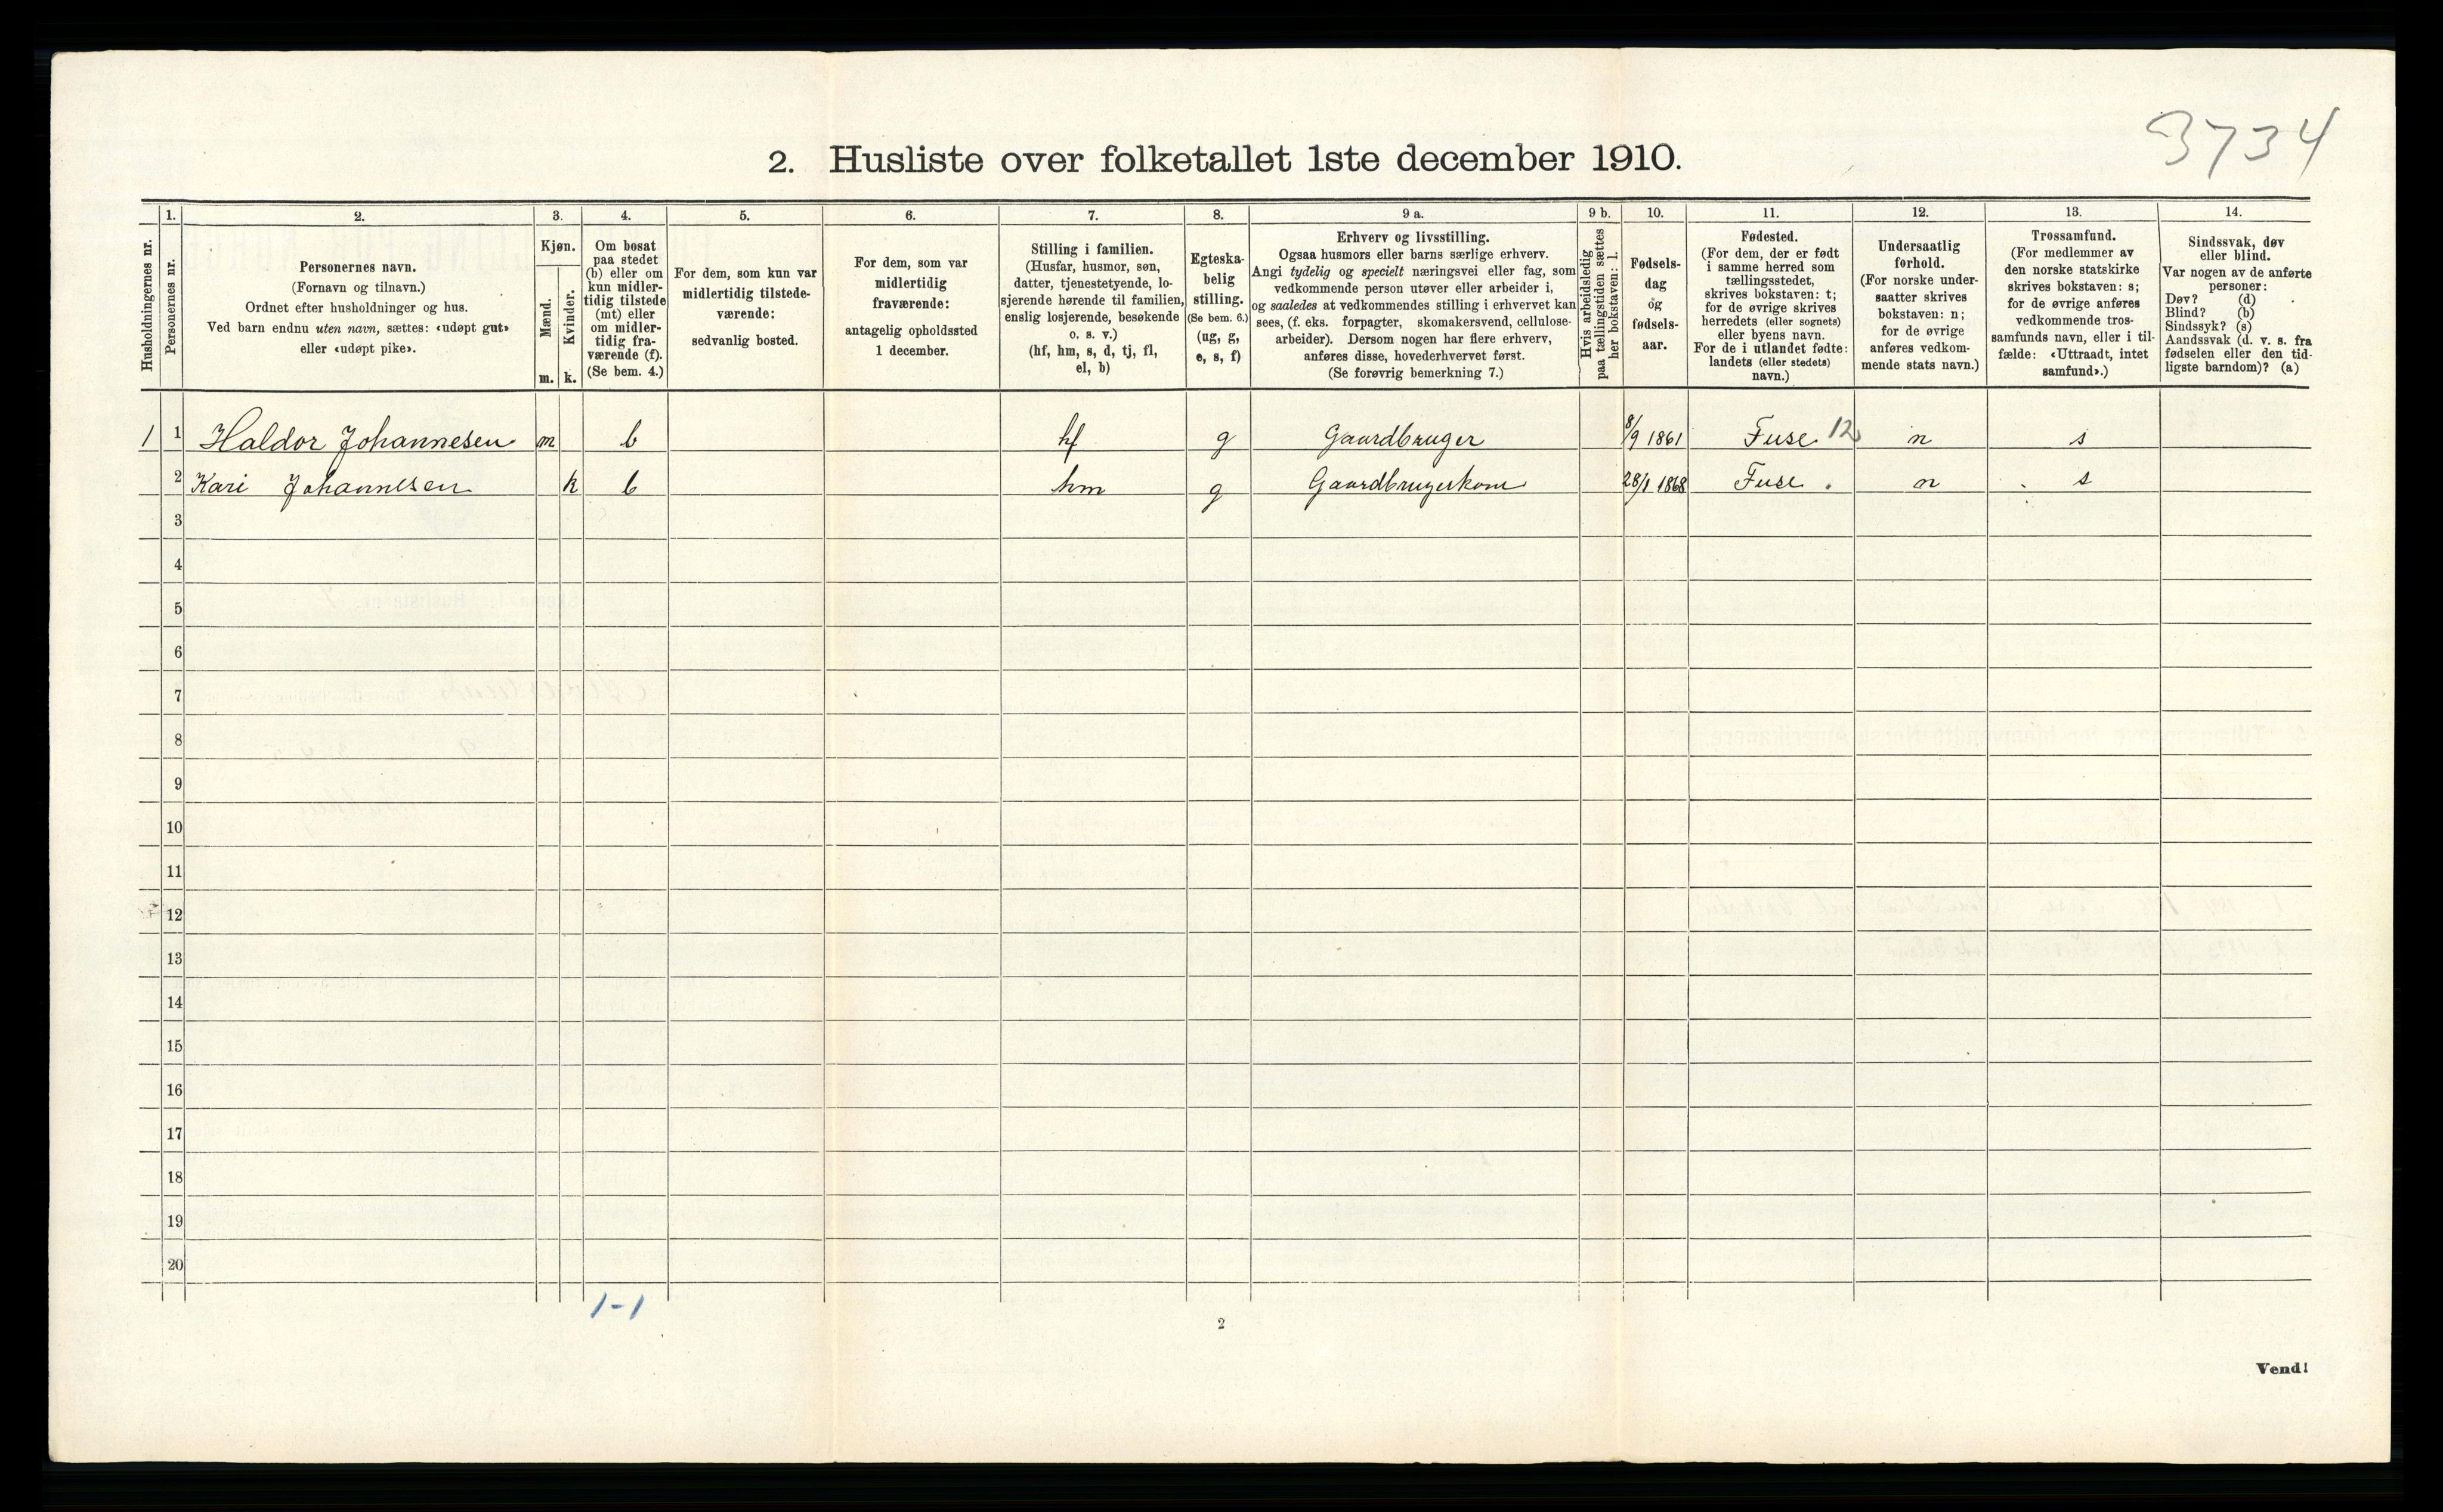 3734
2. Husliste over folketallet 1ste december 1910.
Husholdningernes nr.
1.
Personernes nr.
2.
Personernes navn.
(Fornavn og tilnavn.)
Ordnet efter husholdninger og hus.
Ved barn endnu uten navn, sættes: «udøpt gut»
eller «udøpt pike».
3.
Kjøn.
Mænd.
m.
Kvinder.
k.
4.
Om bosat
paa stedet
(b) eller om
kun midler-
tidig tilstede
(mt) eller
om midler-
tidig fra-
værende (f).
(Se bem. 4.)
5.
For dem, som kun var
midlertidig tilstede-
værende:
sedvanlig bosted.
6.
For dem, som var
midlertidig
fraværende:
antagelig opholdssted
1 december.
7.
Stilling i familien.
(Husfar, husmor, søn,
datter, tjenestetyende, lo-
sjerende hørende til familien,
enslig losjerende, besøkende
o. s. v.)
(hf, hm, s, d, tj, fl,
el, b)
8.
Egteska-
belig
stilling.
(Se bem. 6.)
(ug, g,
e, s, f)
9 a.
Erhverv og livsstilling.
Ogsaa husmors eller barns særlige erhverv.
Angi tydelig og specielt næringsvei eller fag, som
vedkommende person utøver eller arbeider i,
og saaledes at vedkommendes stilling i erhvervet kan
sees, (f. eks. forpagter, skomakersvend, cellulose-
arbeider). Dersom nogen har flere erhverv,
anføres disse, hovederhvervet først.
(Se forøvrig bemerkning 7.)
9 b.
Hvis arbeidsledig
paa tællingstiden sættes
her bokstaven: l.
10.
Fødsels-
dag
og
fødsels-
aar.
11.
Fødested.
(For dem, der er født
i samme herred som
tællingsstedet,
skrives bokstaven: t;
for de øvrige skrives
herredets (eller sognets)
eller byens navn.
For de i utlandet fødte:
landets (eller stedets)
navn.)
12.
Undersaatlig
forhold.
(For norske under-
saatter skrives
bokstaven: n;
for de øvrige
anføres vedkom-
mende stats navn.)
13.
Trossamfund.
(For medlemmer av
den norske statskirke
skrives bokstaven: s;
for de øvrige anføres
vedkommende tros-
samfunds navn, eller i til-
fælde: «Uttraadt, intet
samfund».)
14.
Sindssvak, døv
eller blind.
Var nogen av de anførte
personer:
Døv? (d)
Blind? (b)
Sindssyk? (s)
Aandssvak (d. v. s. fra
fødselen eller den tid-
ligste barndom)? (a)
1 1 Haldor Johannesen m b hf g Gaardbruger 8/9 1861 Fuse 12 n s
2 Kari Johannesen k b hm g Gaardbrugerkone 28/1 1868 Fuse . n s
3
4
5
6
7
8
9
10
11
12
13
14
15
16
17
18
19
20
1-1
2
Vend!